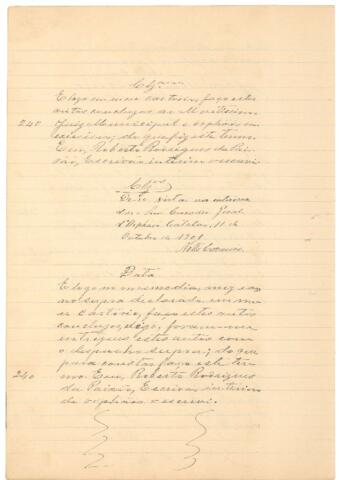 Clz.am
E logo em meu cartorio, faço estes
autos conclusos ao Meritissimo
240 Juiz Municipal e orphãos em
exercicio; do que fiz este termo.
Eu, Roberto Rodrigues da Pai-
xão, Escrivão interino o escrevi
Clz.os
De-se vista ao
Snr. Curador Geral
d'Orphãos. Catalão, 11 de
Outubro de 1901
Data
E logo em mesmo dia, mez e an-
no supra declarado, em me-
u cartorio, faço estes autos
conclusos, digo, foram-me
entregues estes autos com
o despacho supra; do que
para constar, faço este ter-
240 mo. Eu, Roberto Rodrigues
da Paixão, Escrivão interino
de orphãos o escrevi.